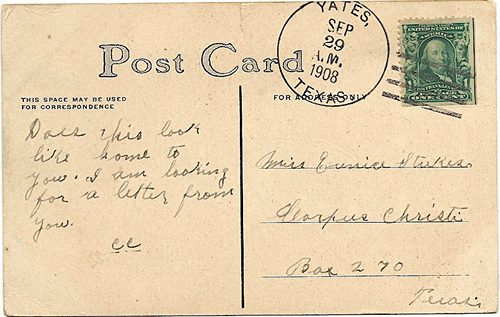 YATES,
SEP
29
A.M.
1908
TEXAS
UNITED STATES OF
AMERICA
FRANKLIN
ONE CENT
Post Card
THIS SPACE MAY BE USED
FOR CORRESPONDENCE
FOR ADDRESS ONLY
Does this look
like home to
you. I am looking
for a letter from
you.
CC
Miss Eunice Stukes
Corpus Christi
Box 270
Texas